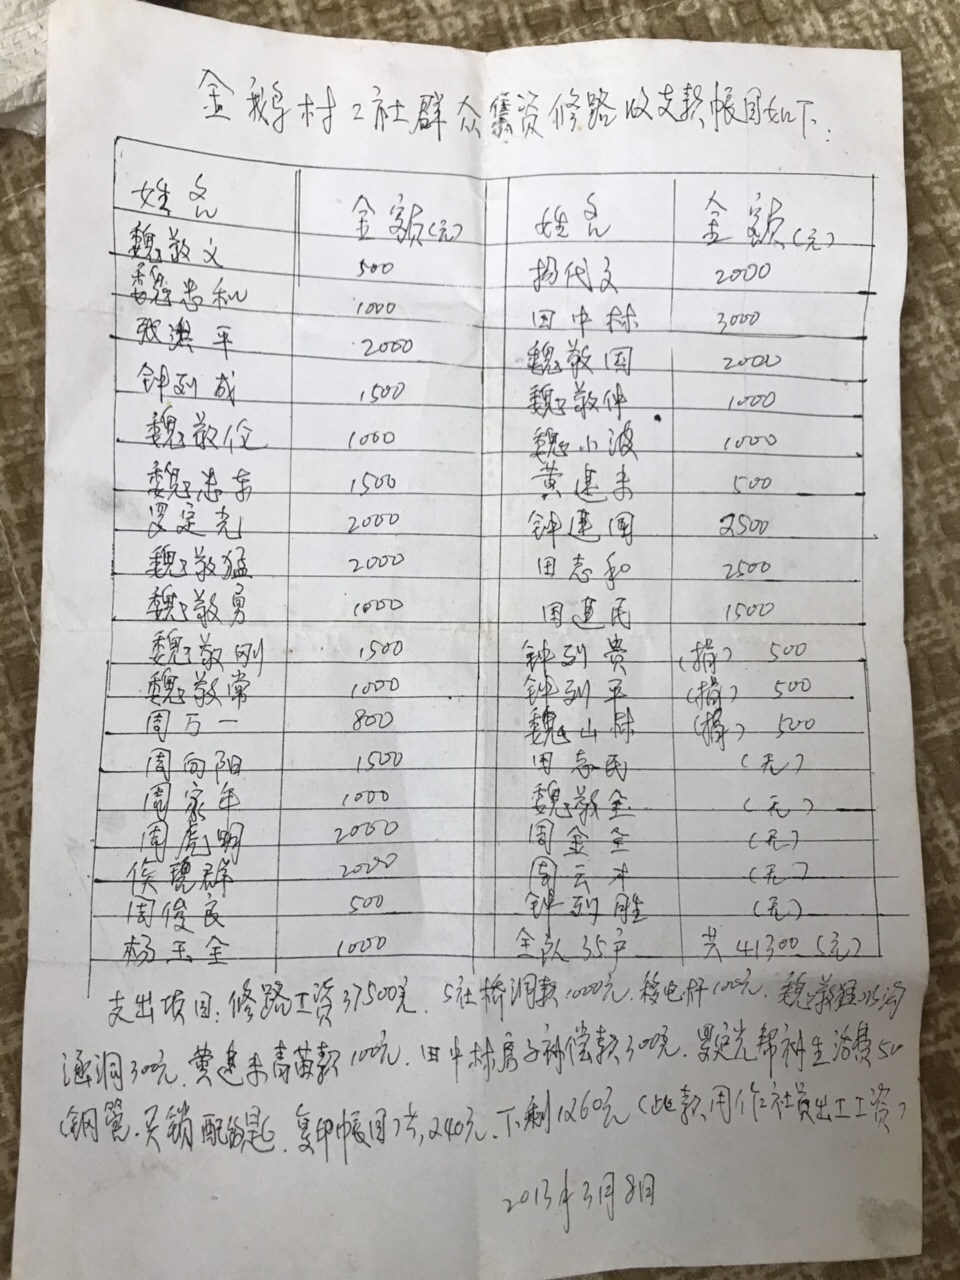 金鹅村2社群众集资修路收支款帐目如下:
姓名 金额(元) 姓名 金额(元)
魏敬文 500 杨代文 2000
魏忠和 1000 田中林 3000
张洪平 2000 魏敬国 2000
钟列成 1500 魏敬仲 1000
魏敬伦 1000 魏小波 1000
魏忠东 1500 黄建未 500
罗定光 2000 钟建国 2500
魏敬猛 2000 田志和 2500
魏敬勇 1000 田建民 1500
魏敬刚 1500 钟列贵 (捐) 500
魏敬常 1000 钟列平 (捐) 500
周万一 800 魏山林 (捐) 500
周向阳 1500 田志民 (无)
周家年 1000 魏敬全 (无)
周虎明 2000 周金全 (无)
侯群 2000 周云才 (无)
周俊良 500 钟列胜 (无)
杨玉金 1000 全队35户 共41300(元)
支出项目:修路工资37500元. 5社桥洞款1000元. 移电杆100元. 魏敬猛
涵洞300元. 黄建未青苗款100元. 田中林房子补偿款300元. 罗定光帮补生活费50
(钢管. 买锁配钥匙. 复印帐目)共240元. 下剩1260元(此款用作社员出工工资)
2013年3月8日